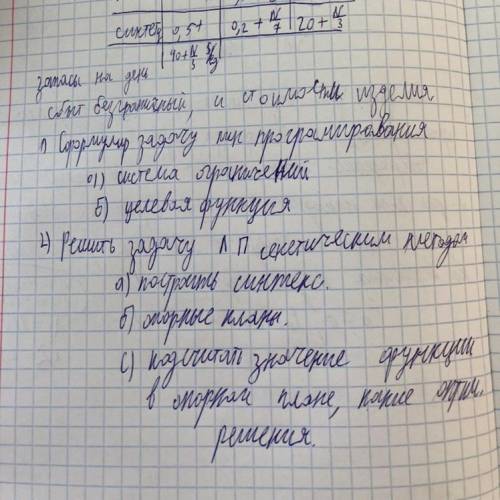 синтет 0,5+ 0,2 + N/7 20 + N/3
40+N/3
запасы на день
сбыт безграничный, и стоимости изделия
1) Сформулир задачу лин программирования
а) система ограничений
б) целевая функция
2) Решить задачу ЛП методом
а) построить синтекс.
б) опорные планы.
с) подсчитать значение функции
в опорном плане, какие оптим.
решения.